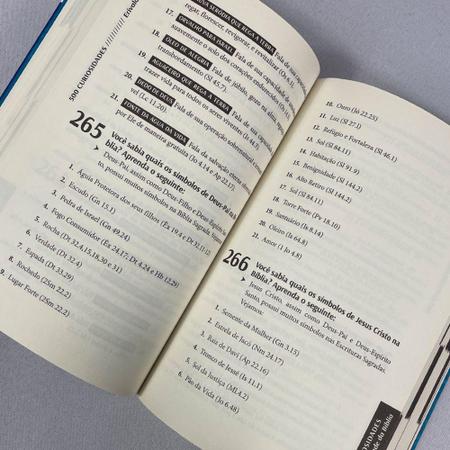 500 CURIOSIDADES
CHUVA SERÔDIA QUE REGA A TERRA
regar, florescer, revigorar, e revitalizar (Os 6.3).
17. ORVALHO PARA ISRAEL Fala de sua capacidade de
suavemente o solo dos corações endurecidos
18. ÓLEO DE ALEGRIA Fala de júbilo, gozo
transbordamento (Sl 45.7).
19. AGUACEIRO QUE REGA A TERRA Fala de sua capacidade
trazer vida para todos os seres viventes (Is 44.3).
20. DEDO DE DEUS Fala de sua operação sobrenatural
vel (Lc 11.20).
21. FONTE DA ÁGUA DA VIDA Fala da salvação
por Ele de maneira gratuita (Jo 4.14 e Ap 22.17).
265 Você sabia quais os símbolos de Deus-Pai na
Bíblia? Aprenda o seguinte:
➤ Deus-Pai, assim como Deus-Filho e Deus-Espírito
possui muitos símbolos na Bíblia Sagrada.
1. Águia Protetora dos seus filhos (Êx 19.4 e Dt 32.11-12)
2. Escudo (Gn 15.1)
3. Pedra de Israel (Gn 49.24)
4. Fogo Consumidor (Êx 24.17; Dt 4.24 e Hb 12.29)
5. Rocha (Dt 32.4,15,18,30 e 31)
6. Verdade (Dt 32.4)
7. Espada (Dt 33.29)
8. Rochedo (2Sm 22.2)
9. Lugar Forte (2Sm 22.2)
10. Ouro (Jó 22.25)
11. Luz (Sl 27.1)
12. Refúgio e Fortaleza (Sl 46.1)
13. Sol (Sl 84.11)
14. Habitação (Sl 91.9)
15. Benignidade (Sl 144.2)
16. Alto Retiro (Sl 144.2)
17. Sol (Sl 84.11)
18. Torre Forte (Pv 18.10)
19. Santuário (Is 8.14)
20. Oleiro (Is 64.8)
21. Amor (1 Jo 4.8)
266 Você sabia quais os símbolos de Jesus Cristo na
Bíblia? Aprenda o seguinte:
➤ Jesus Cristo, assim como Deus-Pai e Deus-Espírito
Santo, possui muitos símbolos nas Escrituras Sagradas.
Vejamos:
1. Semente da Mulher (Gn 3.15)
2. Estrela de Jacó (Nm 24.17)
3. Raiz de Davi (Ap 22.16)
4. Tronco de Jessé (Is 11.1)
5. Sol da Justiça (Ml 4.2)
6. Pão da Vida (Jo 6.48)